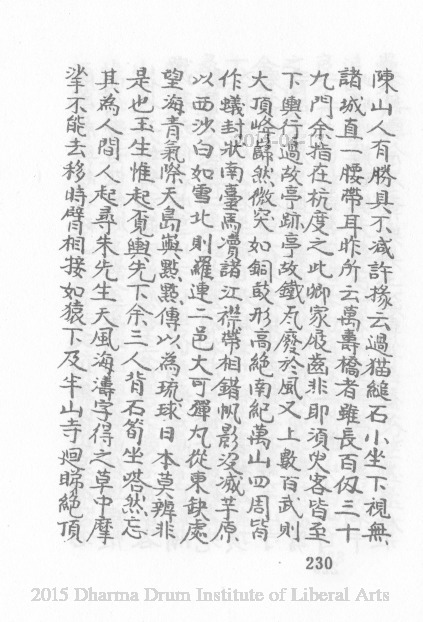 陳山人有勝具不減許掾云過猫䌫石小坐下視無
諸城直一腰帶耳昨所云萬壽橋者雖長百仭三十
九門余指在杭度之此卿家屐齒非即須臾客皆至
下輿行過故亭跡亭故鐵瓦廢於風又上數百武則
大頂峰巋然微突如銅鼓形高絕南紀萬山四周皆
作蟻封狀南臺馬瀆諸江襟帶相錯帆影沒滅芋原
以西沙白如雪北則羅連二邑大可彈丸從東缺處
望海青氣際天島嶼點點傳以為琉球日本莫辨非
是也玉生惟起覔輿先下余三人背石筍坐嗒然忘
其為人間人起尋朱先生天風海濤字得之草中摩
挲不能去移時臂相接如猿下及半山寺迴睇絕頂
230
2015 Dharma Drum Institute of Liberal Arts